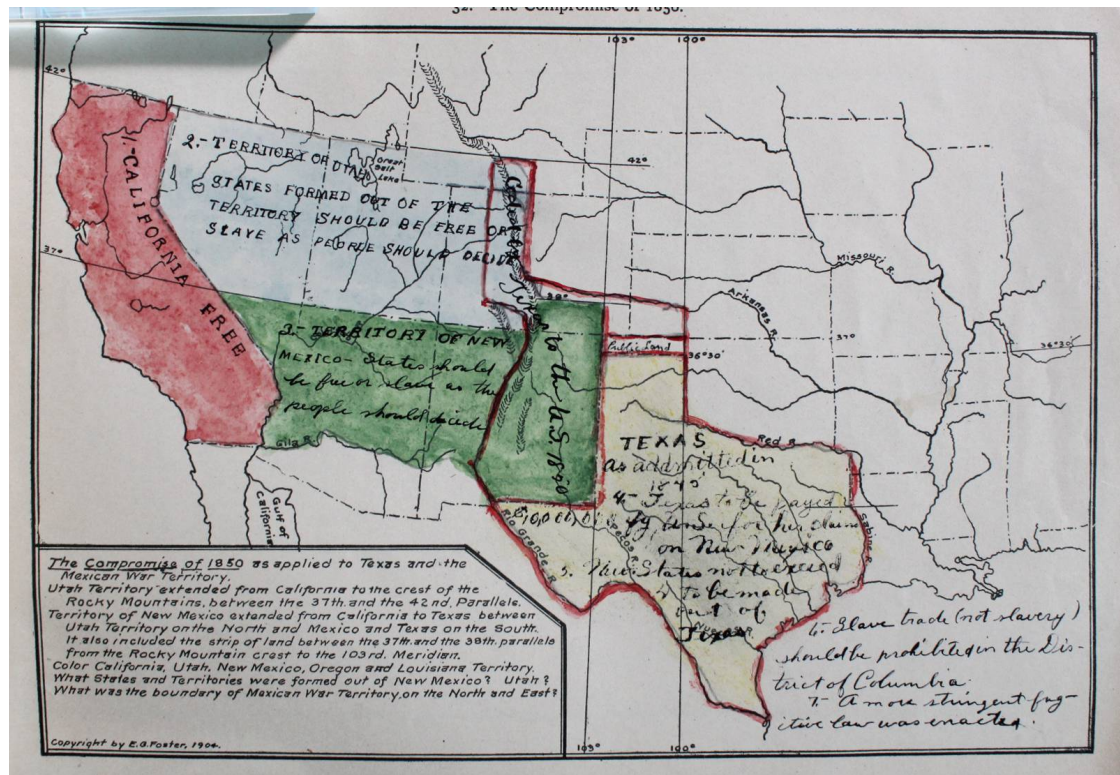 32. The Compromise of 1850.
103° 100°
42°
1.- CALIFORNIA FREE
2.- TERRITORY OF UTAH
Great
Salt
Lake
STATES FORMED OUT OF THE
TERRITORY SHOULD BE FREE OR
SLAVE AS PEOPLE SHOULD DECIDE
42°
37°
38°
Missouri R.
Arkansas R.
37°
36°30'
Public Land
36°30'
3.- TERRITORY OF NEW
MEXICO- States should
be free or slave as the
people should decide
to the U.S. 1850
Gila R.
Gulf of
California
Red R.
TEXAS
as addmitted in
1845
4- Texas to be payed
$10,000,000 by
for her claims
on New Mayico
5. New States not to exceed
4 to be made
out of
Texas
Rio Grande R.
Pecos R.
Sabine R.
6. Slave trade (not slavery)
should be prohibited in the Dis-
trict of Columbia
7. A more stringent fug-
itive law was enacted.
The Compromise of 1850 as applied to Texas and the
Mexican War Territory.
Utah Territory extended from California to the crest of the
Rocky Mountains, between the 37th and the 42nd, Parallels.
Territory of New Mexico extended from California to Texas between
Utah Territory on the North and Mexico and Texas on the South.
It also included the strip of land between the 37th and the 38th parallels
from the Rocky Mountain crest to the 103rd. Meridian.
Color California, Utah, New Mexico, Oregon and Louisiana Territory.
What States and Territories were formed out of New Mexico? Utah?
What was the boundary of Mexican War Territory, on the North and East?
Copyright by E.G. Foster, 1904.
103° 100°